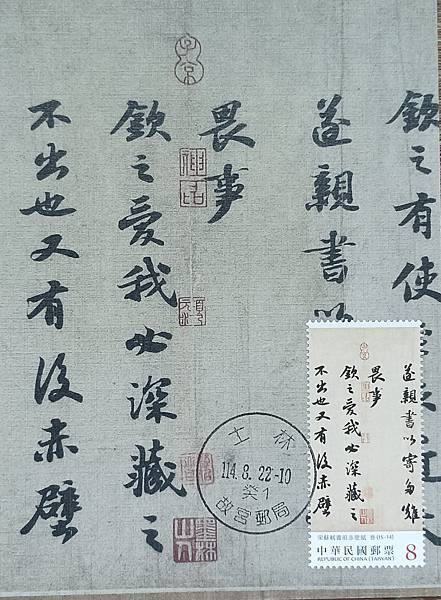 欽之有使
遂親書以
畏事
欽之愛我必深藏之
不出也又有後赤壁
子京
遂親書以寄多難
畏事
欽之愛我必深藏之
不出也又有後赤壁
宋蘇軾書前赤壁賦 卷(15-14)
中華民國郵票 8
REPUBLIC OF CHINA (TAIWAN)
士林
114.8.22-10
癸1
故宮郵局